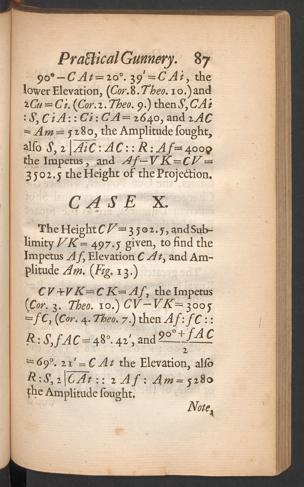 Practical Gunnery. 87
90°−CAt=20°. 39'=CAi, the
lower Elevation, (Cor. 8. Theo. 10.) and
2Cu=Ci. (Cor. 2. Theo. 9.) then S, CAi
:S, CiA::Ci:CA=2640, and 2AC
=Am=5280, the Amplitude sought,
also S, 2|AiC:AC::R:Af=4000
the Impetus, and Af−VK=CV=
3502.5 the Height of the Projection.
CASE X.
The Height CV=3502.5, and Sub-
limity VK=497.5 given, to find the
Impetus Af, Elevation CAt, and Am-
plitude Am. (Fig. 13.)
CV+VK=CK=Af, the Impetus
(Cor. 3. Theo. 10.) CV−VK=3005
=fC, (Cor. 4. Theo. 7.) then Af:fC::
R:S, fAC=48°. 42', and 90°+fAC
2
=69°. 21'=CAt the Elevation, also
R:S, 2|CAt::2Af:Am=5280
the Amplitude sought.
Note,